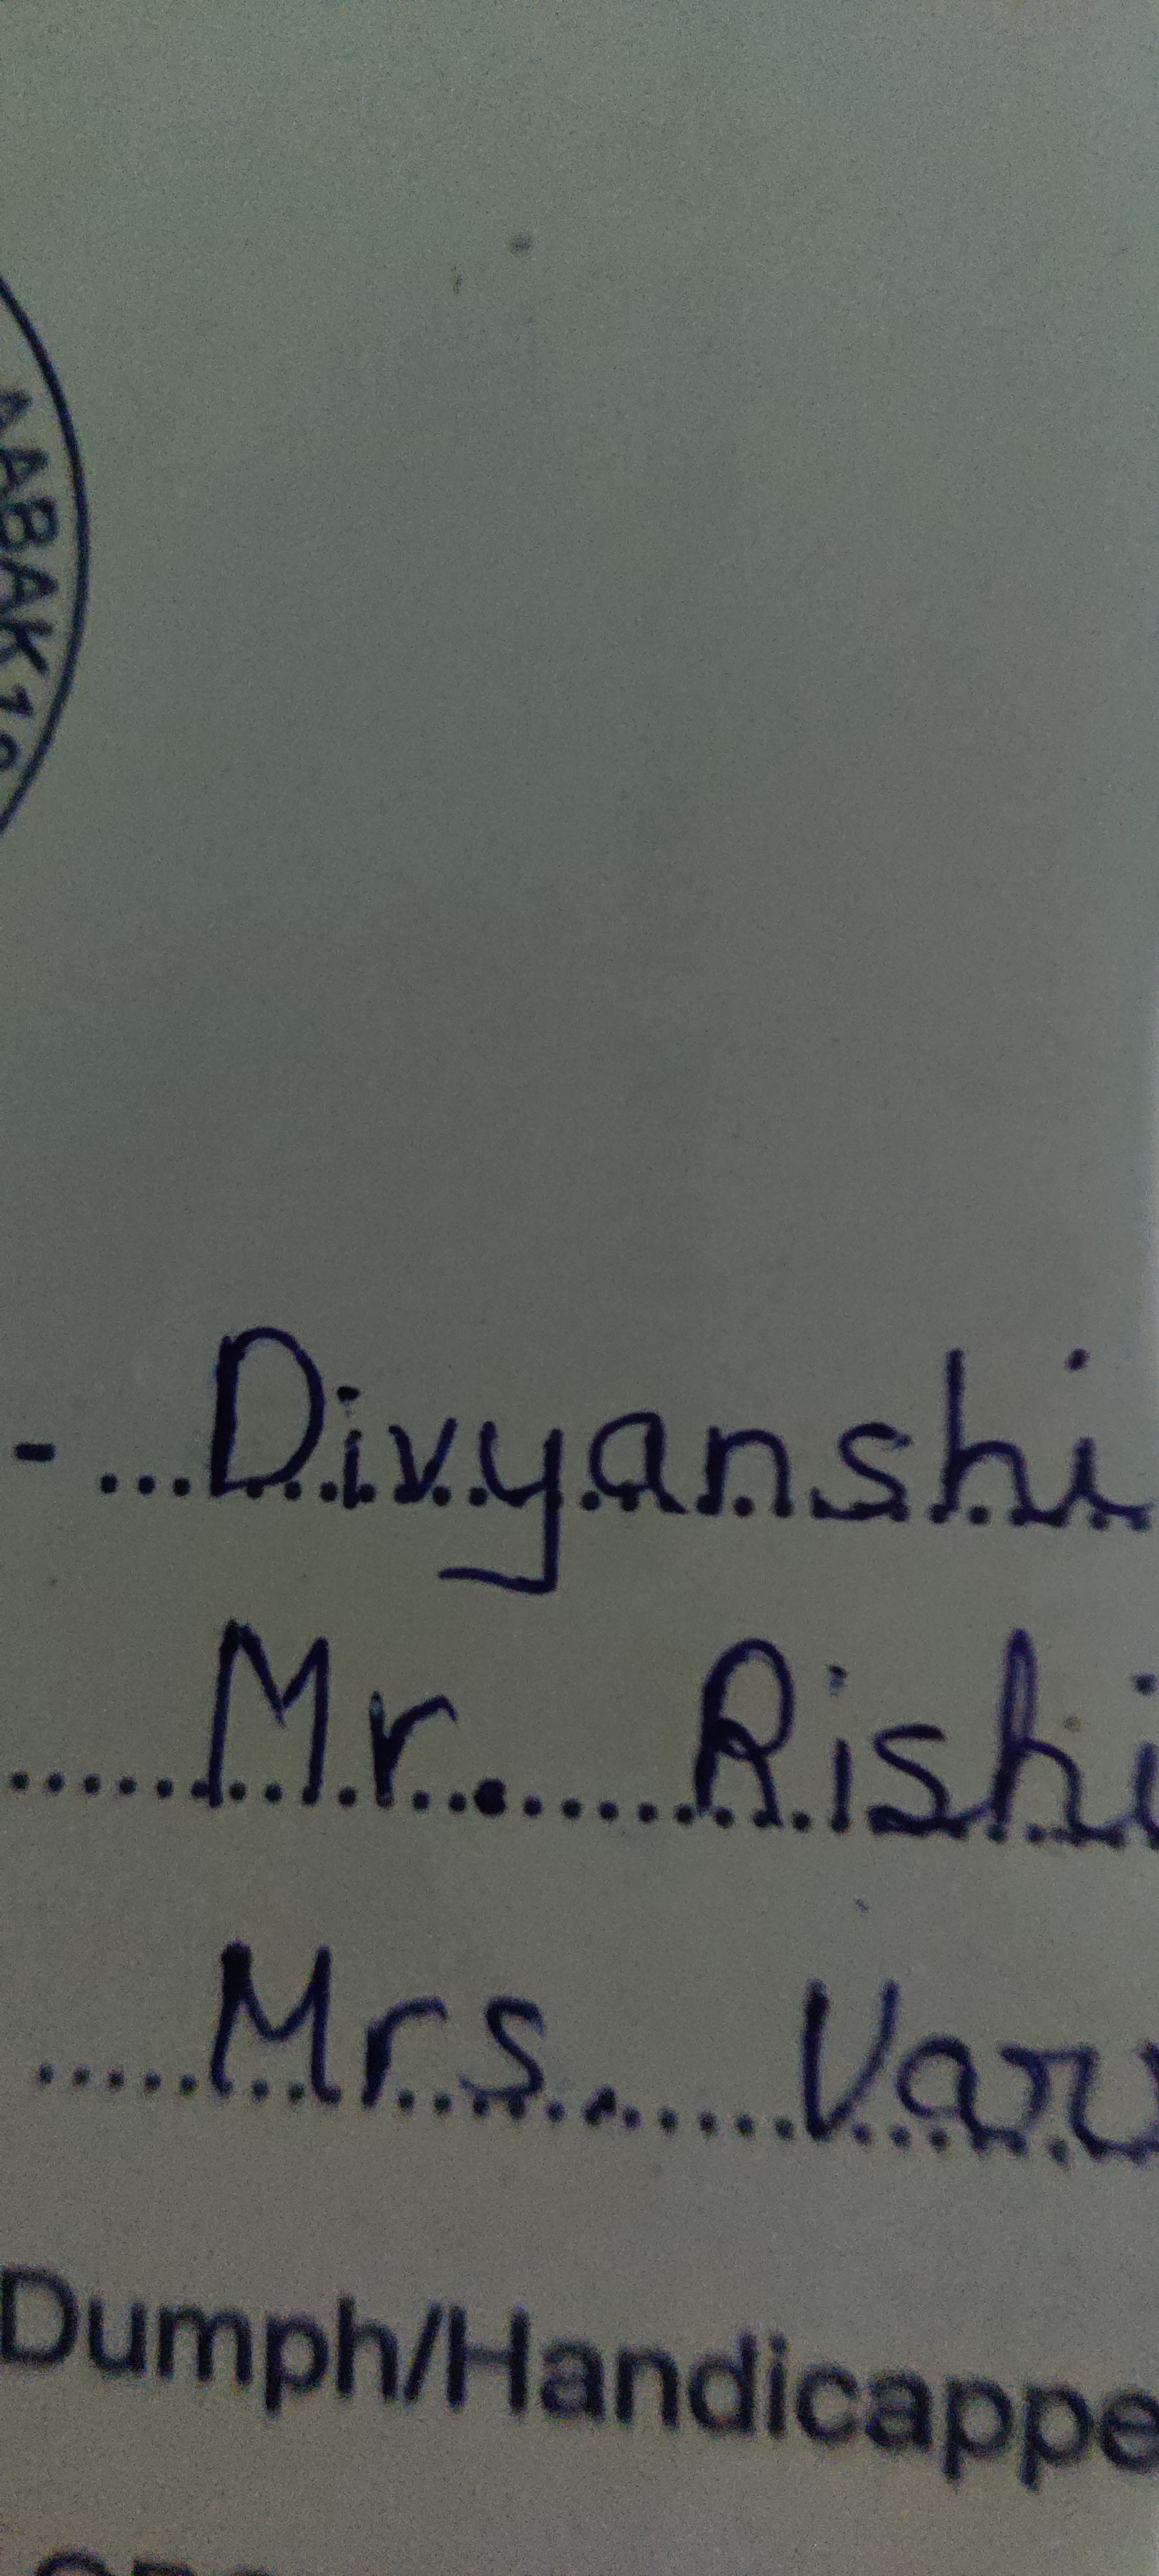 AABAK1
- ...Divyanshi
Mr. Rishi
Mrs. Varu
Dumph/Handicappe